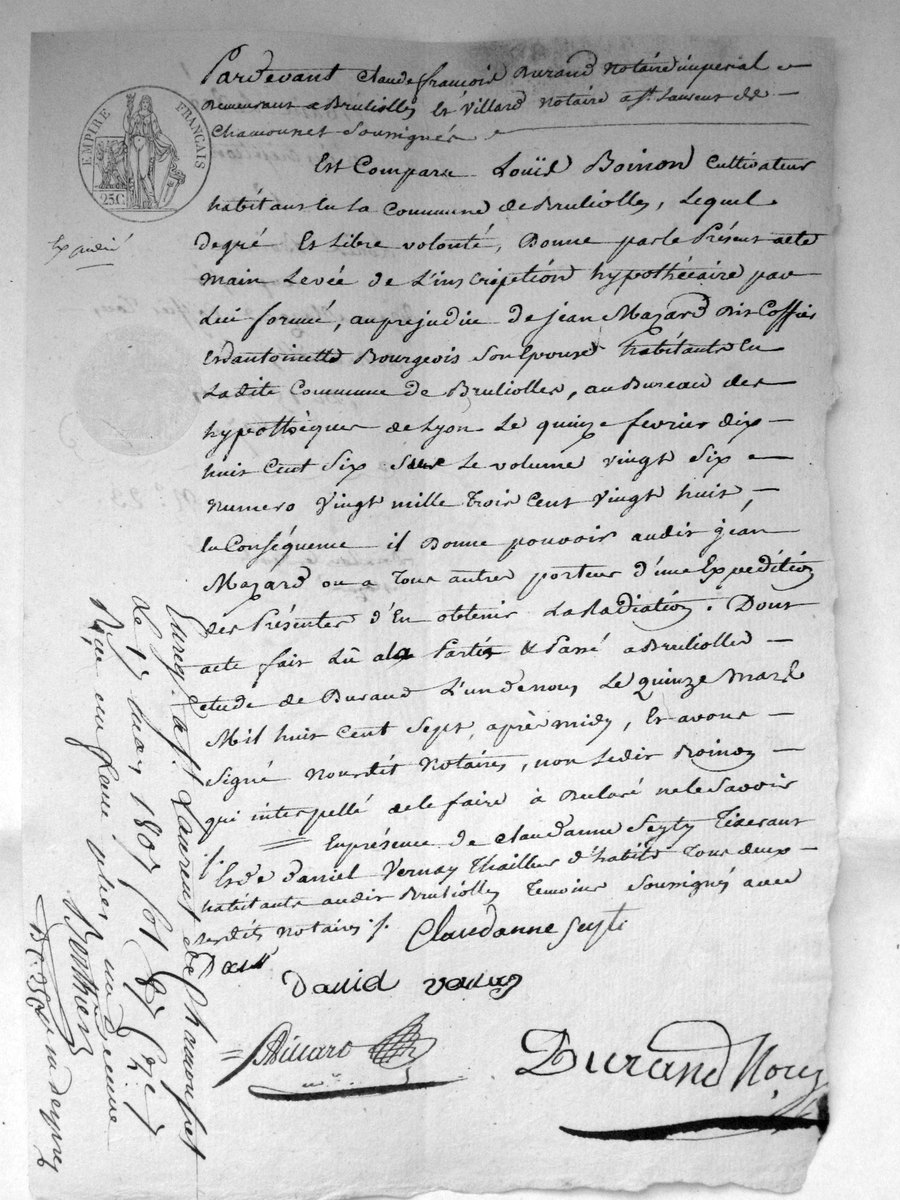 EMPIRE FRANÇAIS
25 C.
Pardevant Claude françois Durand Notaire impérial
Demeurant a Bruliolles Et Villard Notaire a St. Laurent de
Chamousset Soussignés
Est Comparu Louïs Boinon Cultivateur
habitant En la Commune de Brulioles, Lequel
degré Et Libre volonté, Donne par le Présent acte
main Levée de L'inscription hypothécaire par
Lui formé, au prejudice de jean Mazard Dit Coffier
Et d'antoinette Bourgeois Son Epouse habitants En
Ladite Commune de Brulioller, au Bureau des
hypothèques de Lyon Le quinze fevrier dix
huit Cent Six Sur Le volume vingt Six
numero vingt mille trois Cent vingt huit,
En Conséquence il Donne pouvoir audit jean
Mazard ou a Tout autre porteur d'une Expédition
des Présentes d'En obtenir La Radiation. Dont
acte fait Lû a la Partie & Passé a Brulioller
etude de Durand L'un de nous Le Quinze Mars
Mil huit Cent Sept, après midy, Et avons
Signé Nousdit Notaires, non Ledit Boinon
qui interpellé de le faire à Declaré ne le Savoir
En présence de Claudanne Seyty Tixerant
Et de daniel Vernay Thailleur d'habits Tous deux
habitants audit Brulioller Temoins Soussignés avec
lesdits notaires
Claudanne Seyti
David
Villard
Durand Nore
Enreg. a St. Laurent de Chamousset
le 17 mars 1807 fol 87
Reçu un franc